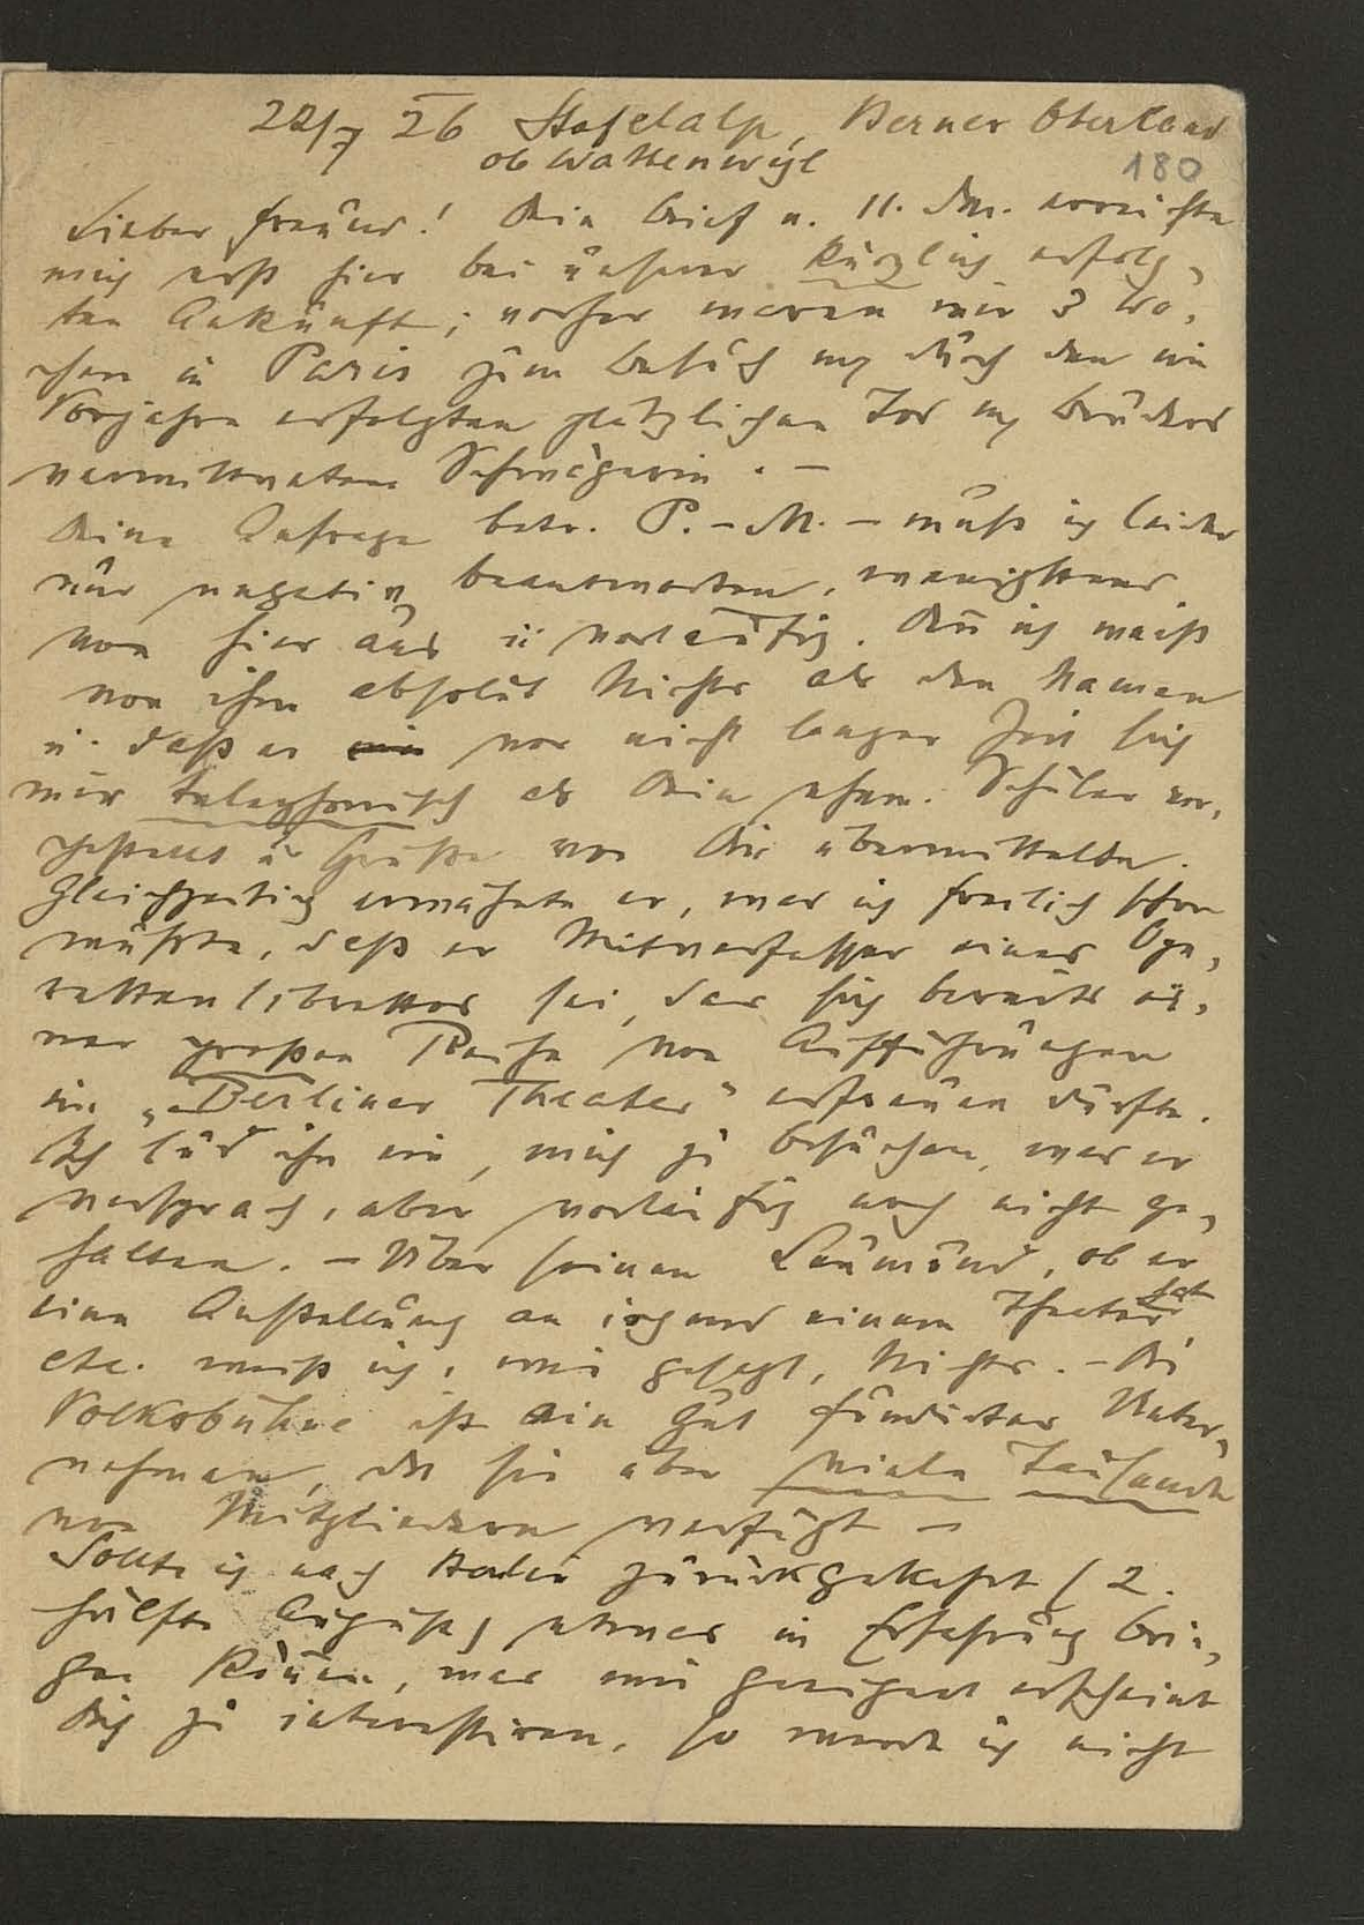 22/7 26 Stafelalp, Berner Oberland
ob Wattenwyl
180
Lieber Freund! Dein Brief v. 11. ds. erreichte
mich erst hier bei unserer kürzlich erfolg-
ten Ankunft; vorher waren wir 3 Wo-
chen in Paris zum Besuch m. durch den im
Vorjahre erfolgten plötzlichen Tod m. Bruders
verwittweten Schwägerin. –
Deine Anfrage betr. P.-M. – muß ich leider
nur negativ beantworten, wenigstens
von hier aus u vorläufig. Denn ich weiß
von ihm absolut Nichts als den Namen
u. daß er vor nicht langer Zeit sich
mir telephonisch als Dein ehem. Schüler vor-
gestellt u Grüße von Dir übermittelte.
Gleichzeitig erwähnte er, was ich freilich schon
wußte, daß er Mitverfasser eines Ope-
rettenlibrettos sei, das sich bereits ei-
ner großen Reihe von Aufführungen
im „Berliner Theater" erfreuen dürfte.
Ich lud ihn ein, mich zu besuchen, was er
versprach, aber vorläufig noch nicht ge-
halten. – Über seinen Leumund, ob er
eine Anstellung an irgend einem Theater hat
etc. weiß ich, wie gesagt, Nichts. – Die
Volksbühne ist ein gut fundirtes Unter-
nehmen, da sie über viele Tausende
von Mitgliedern verfügt –
Sollte ich nach Berlin zurückgekehrt (2.
Hälfte August) etwas in Erfahrung brin-
gen können, was mir geeignet erscheint
Dich zu interessiren, so werde ich nicht